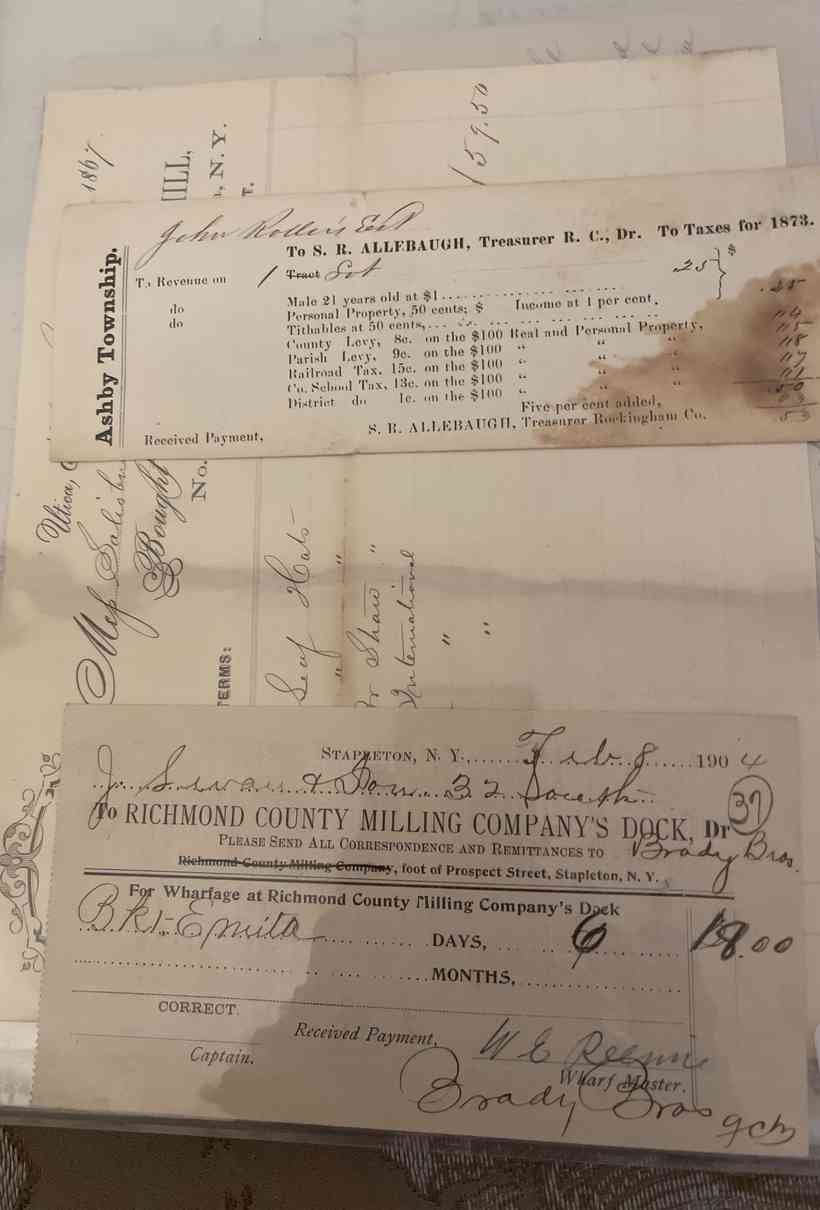 1867
HILL,
N. Y.
159.50
Ashby Township.
John Roller's Est
To S. R. ALLEBAUGH, Treasurer R. C., Dr. To Taxes for 1873.
To Revenue on 1 Tract Lot 25 $ .25
Male 21 years old at $1
do Personal Property, 50 cents; $ Income at 1 per cent.
do Tithables at 50 cents,
County Levy, 8c. on the $100 Real and Personal Property,
Parish Levy, 9c. on the $100 " " "
Railroad Tax, 15c. on the $100 " " "
Co. School Tax, 13c. on the $100 " " "
District do 1c. on the $100 " " "
50
Five per cent added, 03
Received Payment, S. R. ALLEBAUGH, Treasurer Rockingham Co. 53
Utica,
Bought
No.
TERMS:
Leaf Hats
" "
Shaw "
International
" "
STAPLETON, N. Y., Feb. 8 1904
J. & Son 32 South
37
To RICHMOND COUNTY MILLING COMPANY'S DOCK, Dr
PLEASE SEND ALL CORRESPONDENCE AND REMITTANCES TO Brady Bros.
Richmond County Milling Company, foot of Prospect Street, Stapleton, N. Y.
For Wharfage at Richmond County Milling Company's Dock
Bkt. Emita DAYS, 6 18.00
MONTHS,
CORRECT.
Received Payment,
Captain.
W E
Wharf Master.
Brady Bros